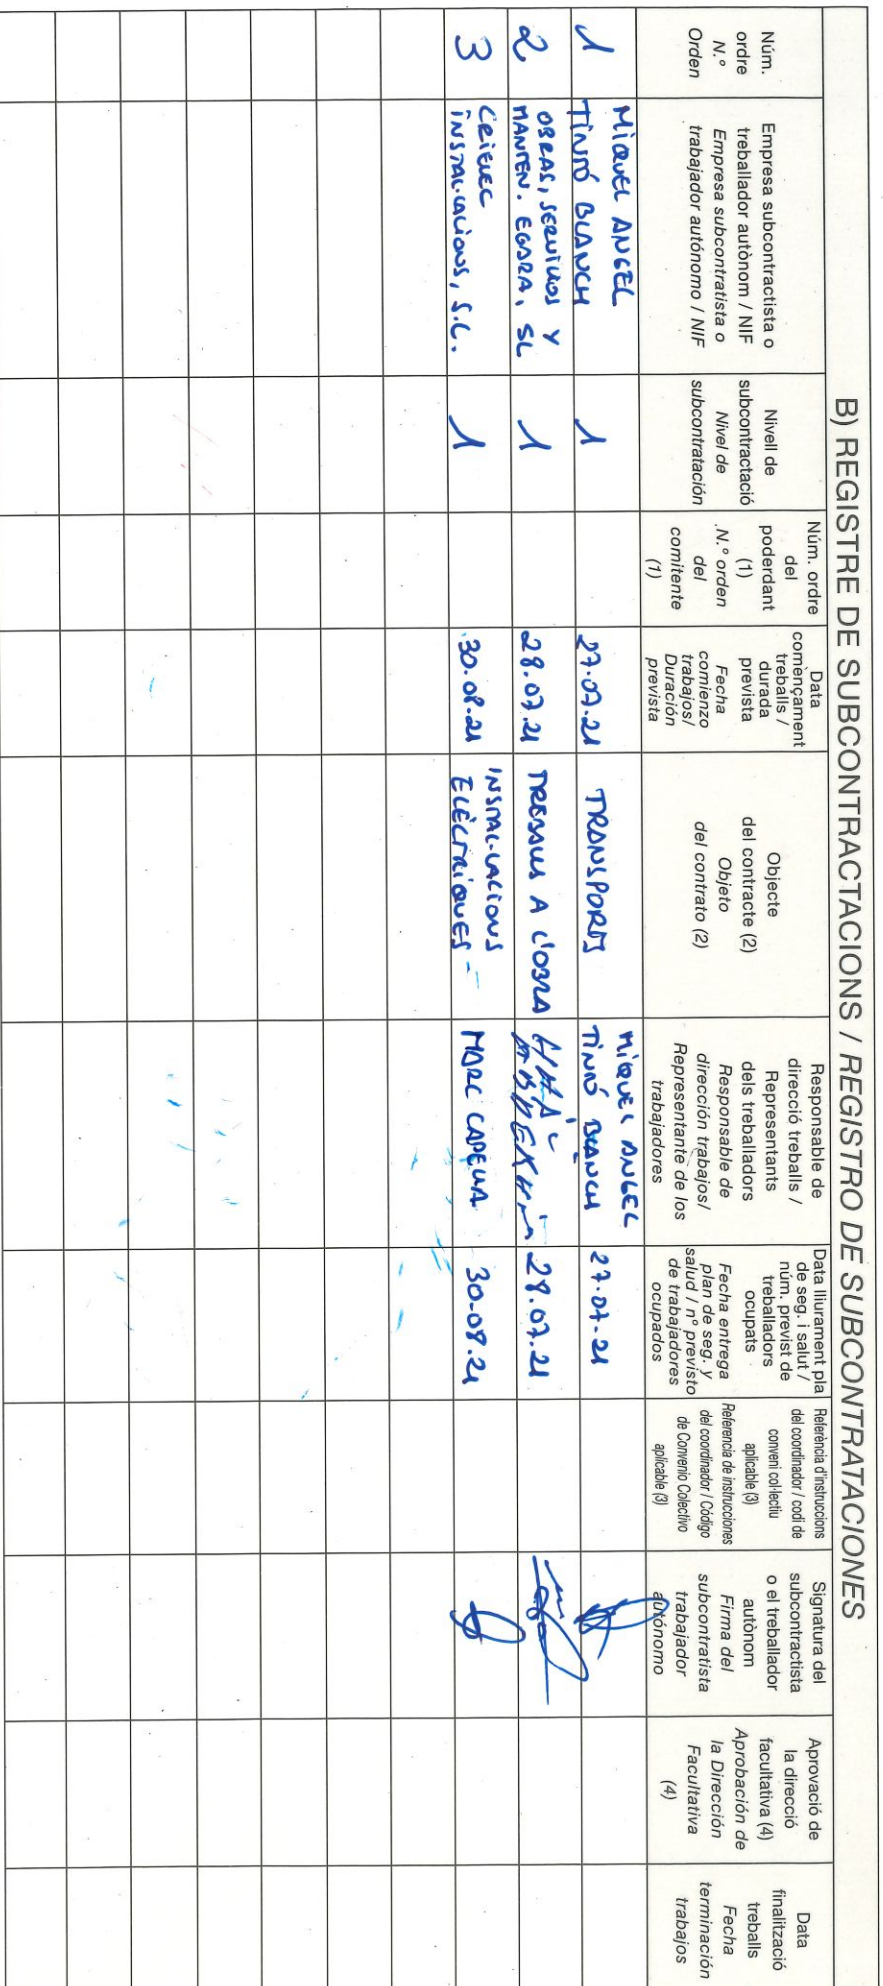 B) REGISTRE DE SUBCONTRACTACIONS / REGISTRO DE SUBCONTRATACIONES
Núm.
ordre
N.º
Orden
Empresa subcontractista o
treballador autònom / NIF
Empresa subcontratista o
trabajador autónomo / NIF
Nivell de
subcontractació
Nivel de
subcontratación
Núm. ordre
del
poderdant
(1)
N.º orden
del
comitente
(1)
Data
començament
treballs /
durada
prevista
Fecha
comienzo
trabajos/
Duración
prevista
Objecte
del contracte (2)
Objeto
del contrato (2)
Responsable de
direcció treballs /
Representants
dels treballadors
Responsable de
dirección trabajos/
Representante de los
trabajadores
Data lliurament pla
de seg. i salut /
núm. previst de
treballadors
ocupats
Fecha entrega
plan de seg. y
salud / nº previsto
de trabajadores
ocupados
Referència d'instruccions
del coordinador / codi de
conveni col·lectiu
aplicable (3)
Referencia de instrucciones
del coordinador / Código
de Convenio Colectivo
aplicable (3)
Signatura del
subcontractista
o el treballador
autònom
Firma del
subcontratista
trabajador
autónomo
Aprovació de
la direcció
facultativa (4)
Aprobación de
la Dirección
Facultativa
(4)
Data
finalització
treballs
Fecha
terminación
trabajos
1
MIQUEL ANGEL
TINTÓ BLANCH
1
27.07.21
TRANSPORTS
MIQUEL ANGEL
TINTÓ BLANCH
27.07.21
2
OBRAS, SERVICIOS Y
MANTEN. EGARA, SL
1
28.07.21
TREBALLS A L'OBRA
28.07.21
3
INSTAL·LACIONS, S.C.
1
30.08.21
INSTAL·LACIONS
ELÈCTRIQUES
MARC CAPELLA
30.08.21